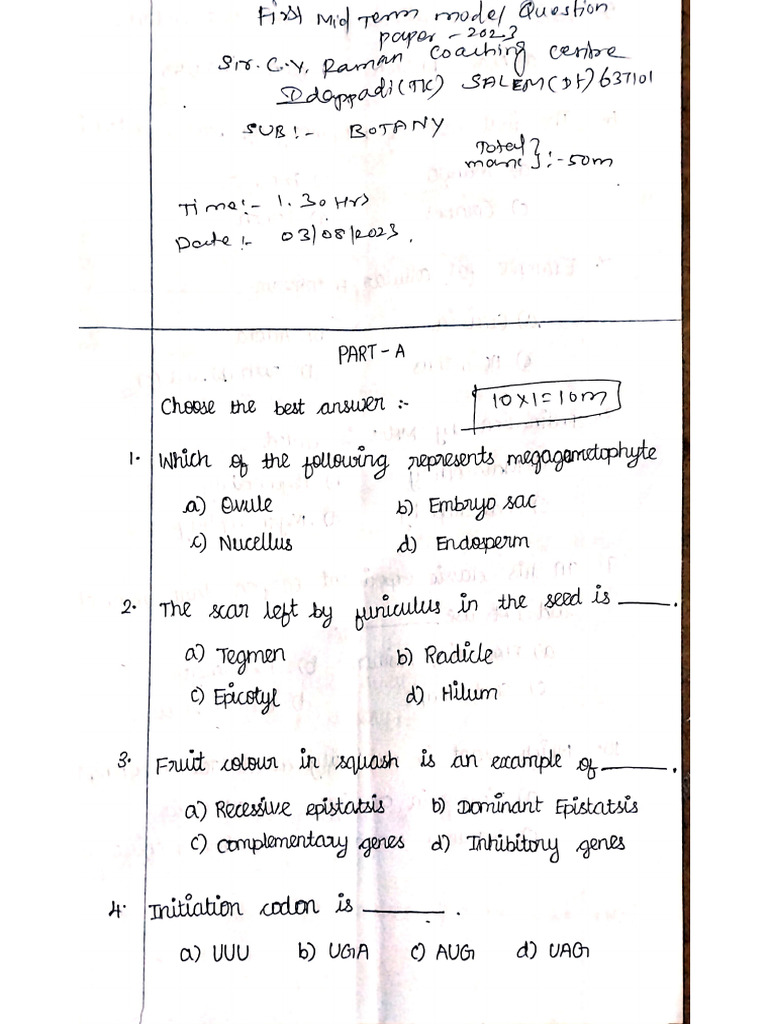 First Mid Term model Question
paper - 2023
Sir. C.V. Raman Coaching centre
Idappadi (TK) SALEM (Dt) 637101
SUB:- BOTANY
Total
mark } :- 50m
Time:- 1.30 Hrs
Date:- 03/08/2023.
PART - A
Choose the best answer :- 10x1=10m
1. Which of the following represents megagametophyte
a) Ovule b) Embryo sac
c) Nucellus d) Endosperm
2. The scar left by funiculus in the seed is ______.
a) Tegmen b) Radicle
c) Epicotyl d) Hilum
3. Fruit colour in squash is an example of ______.
a) Recessive epistatsis b) Dominant Epistatsis
c) Complementary genes d) Inhibitory genes
4. Initiation codon is ______.
a) UUU b) UGA c) AUG d) UAG